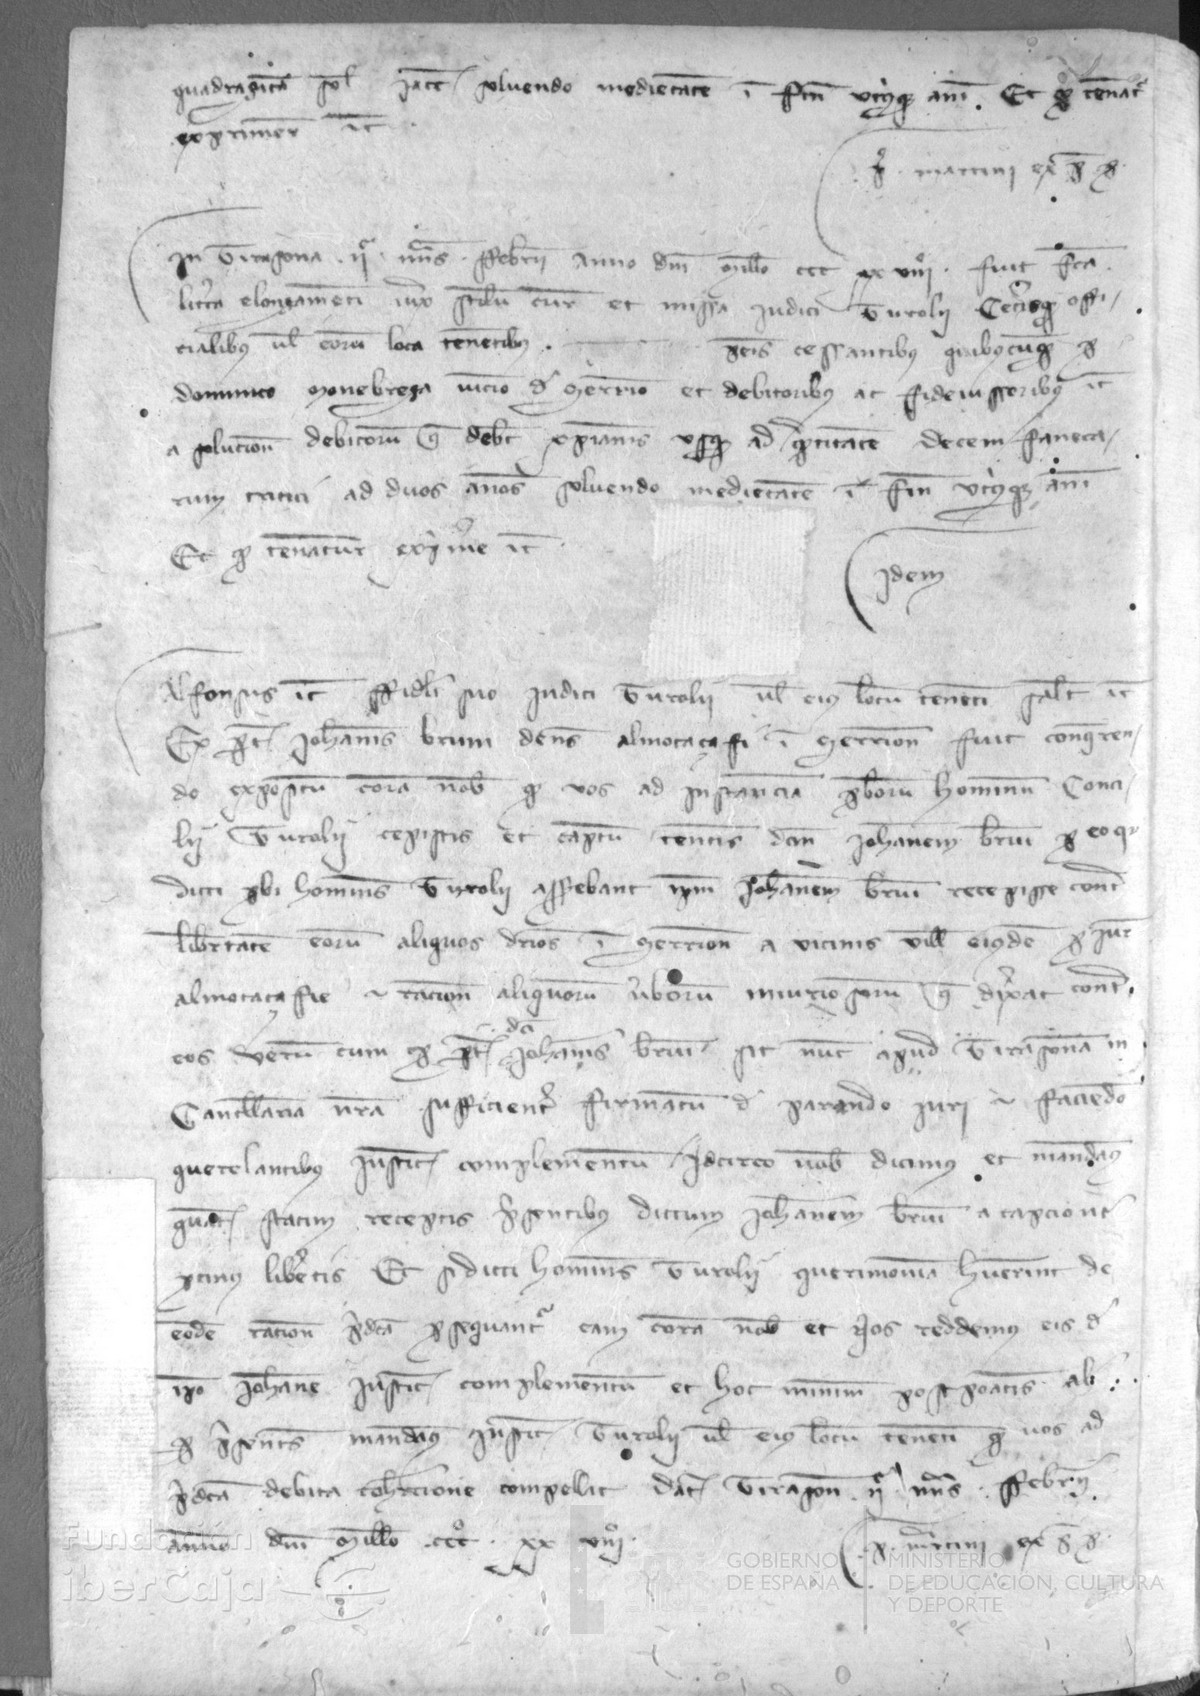 quadraginta sol jacc solvendo medietatem i fin utriusq anni. Et q tenat
exprimere etc
P. martini ex p p
In Tirasona ii nns ffebrii anno dni millo ccc xx viii fuit fca
littera elongamenti iux stilu cur et missa judici Turolii Ceterisq offi
cialibus ul eorum loca tenentibus. pcis cessantibus quibuscumq p
dominico monebrega vicino de Gerrion et debitoribus ac fideiussoribus etc
a solution debitorum q debet xpianis usq ad qtitate decem faneca
rum tritici ad duos annos solvendo medietate i fin utriusq anni
Et q tenatur exprimere etc
Idem
Alfonsus etc ffideli suo Judici Turolii ul eius locum tenenti salt etc
Ex part Johanis bruni dens almotaçafi i Gerrion fuit conqueren
do expositu coram nob q vos ad instancia proborum hominum Conci
lii Turolii cepistis et captum tenetis dcm Johanem brun p eo qr
dicti pbi homines Turolii asserebant ipm Johanem brun recepisse cont
libertatem eorum aliquos drios i Gerrion a vicinis ville eiusdem p jur
almotaçafie et racion aliquorum verborum injuriosorum q dixerat cont
eos Verum cum ex part dci Johanis brun sit nunc apud Tirasonam in
Cancellaria nra sufficienter firmatum de parando juri et faciendo
querelantibus Justicie complementum Idcirco vob dicimus et mandamus
quat statim receptis presentibus dictum Johanem brun a capcione
ptinus liberetis Et si dicti homines Turolii querimoniam huerint de
eodem racion predcta psequantur eam coram nob et nos reddemus eis de
ipo Johane Justicie complementum et hoc minime postponatis ali
p presentes mandamus Justicie Turolii ul eius locum tenenti q vos ad
predcta debita cohercione compellat Dat Tirason ii nns ffebrii
anno dni millo ccc xx viii
P. martini ex p p
Fundación
iberCaja
GOBIERNO
DE ESPAÑA
MINISTERIO
DE EDUCACIÓN, CULTURA
Y DEPORTE